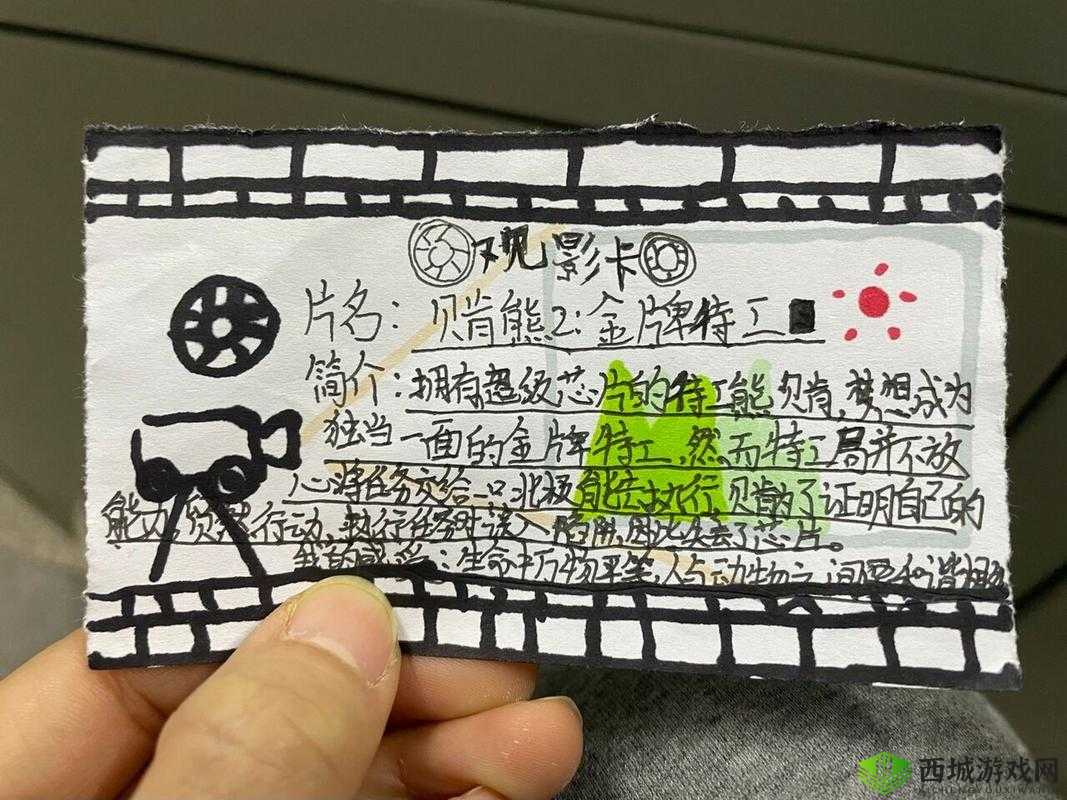 观影卡
片名：贝肯熊2：金牌特工
简介：拥有超级芯片的特工熊贝肯，梦想成为
独当一面的金牌特工，然而特工局并不放
心将任务交给一只北极熊去执行，贝肯为了证明自己的
能力，贸然行动，执行任务时误入陷阱，因此失去了芯片。
我的感受：生命中万物平等，人与动物之间要和谐相处
西城游戏网
XICHENGYOUXIWANG